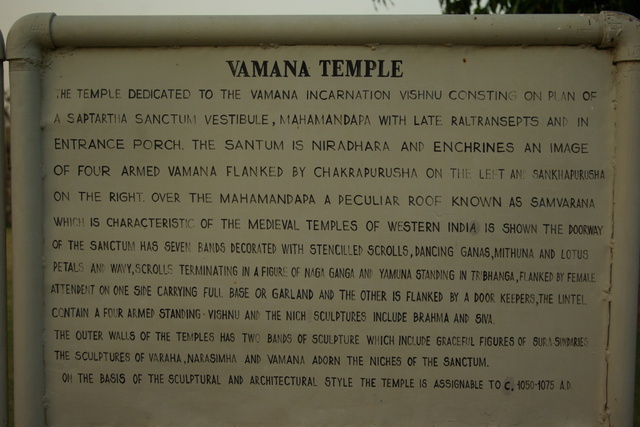 VAMANA TEMPLE
THE TEMPLE DEDICATED TO THE VAMANA INCARNATION VISHNU CONSTING ON PLAN OF
A SAPTARTHA SANCTUM VESTIBULE, MAHAMANDAPA WITH LATE RALTRANSEPTS. AND IN
ENTRANCE PORCH. THE SANTUM IS NIRADHARA AND ENCHRINES AN IMAGE
OF FOUR ARMED VAMANA FLANKED BY CHAKRAPURUSHA ON THE LEFT AND SANKHAPURUSHA
ON THE RIGHT. OVER THE MAHAMANDAPA A PECULIAR ROOF KNOWN AS SAMVARANA
WHICH IS CHARACTERISTIC OF THE MEDIEVAL TEMPLES OF WESTERN INDIA IS SHOWN THE DOORWAY
OF THE SANCTUM HAS SEVEN BANDS DECORATED WITH STENCILLED SCROLLS, DANCING GANAS, MITHUNA AND LOTUS
PETALS AND WAVY, SCROLLS TERMINATING IN A FIGURE OF NAGA GANGA AND YAMUNA STANDING IN TRIBHANGA, FLANKED BY FEMALE
ATTENDENT ON ONE SIDE CARRYING FULL BASE OR GARLAND AND THE OTHER IS FLANKED BY A DOOR KEEPERS, THE LINTEL
CONTAIN A FOUR ARMED STANDING VISHNU AND THE NICH SCULPTURES INCLUDE BRAHMA AND SIVA.
THE OUTER WALLS OF THE TEMPLES HAS TWO BANDS OF SCULPTURE WHICH INCLUDE GRACEFUL FIGURES OF SURA SUNDARIES
THE SCULPTURES OF VARAHA, NARASIMHA AND VAMANA ADORN THE NICHES OF THE SANCTUM.
ON THE BASIS OF THE SCULPTURAL AND ARCHITECTURAL STYLE THE TEMPLE IS ASSIGNABLE TO C. 1050-1075 A.D.